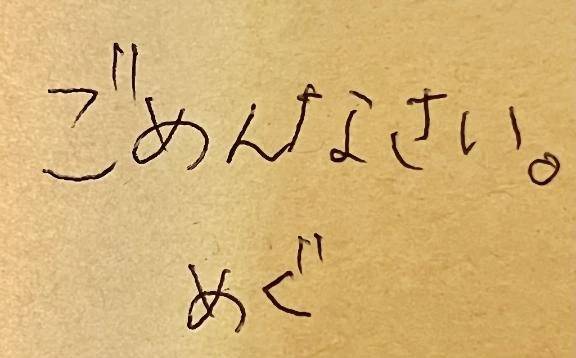 ごめんなさい。
めぐ